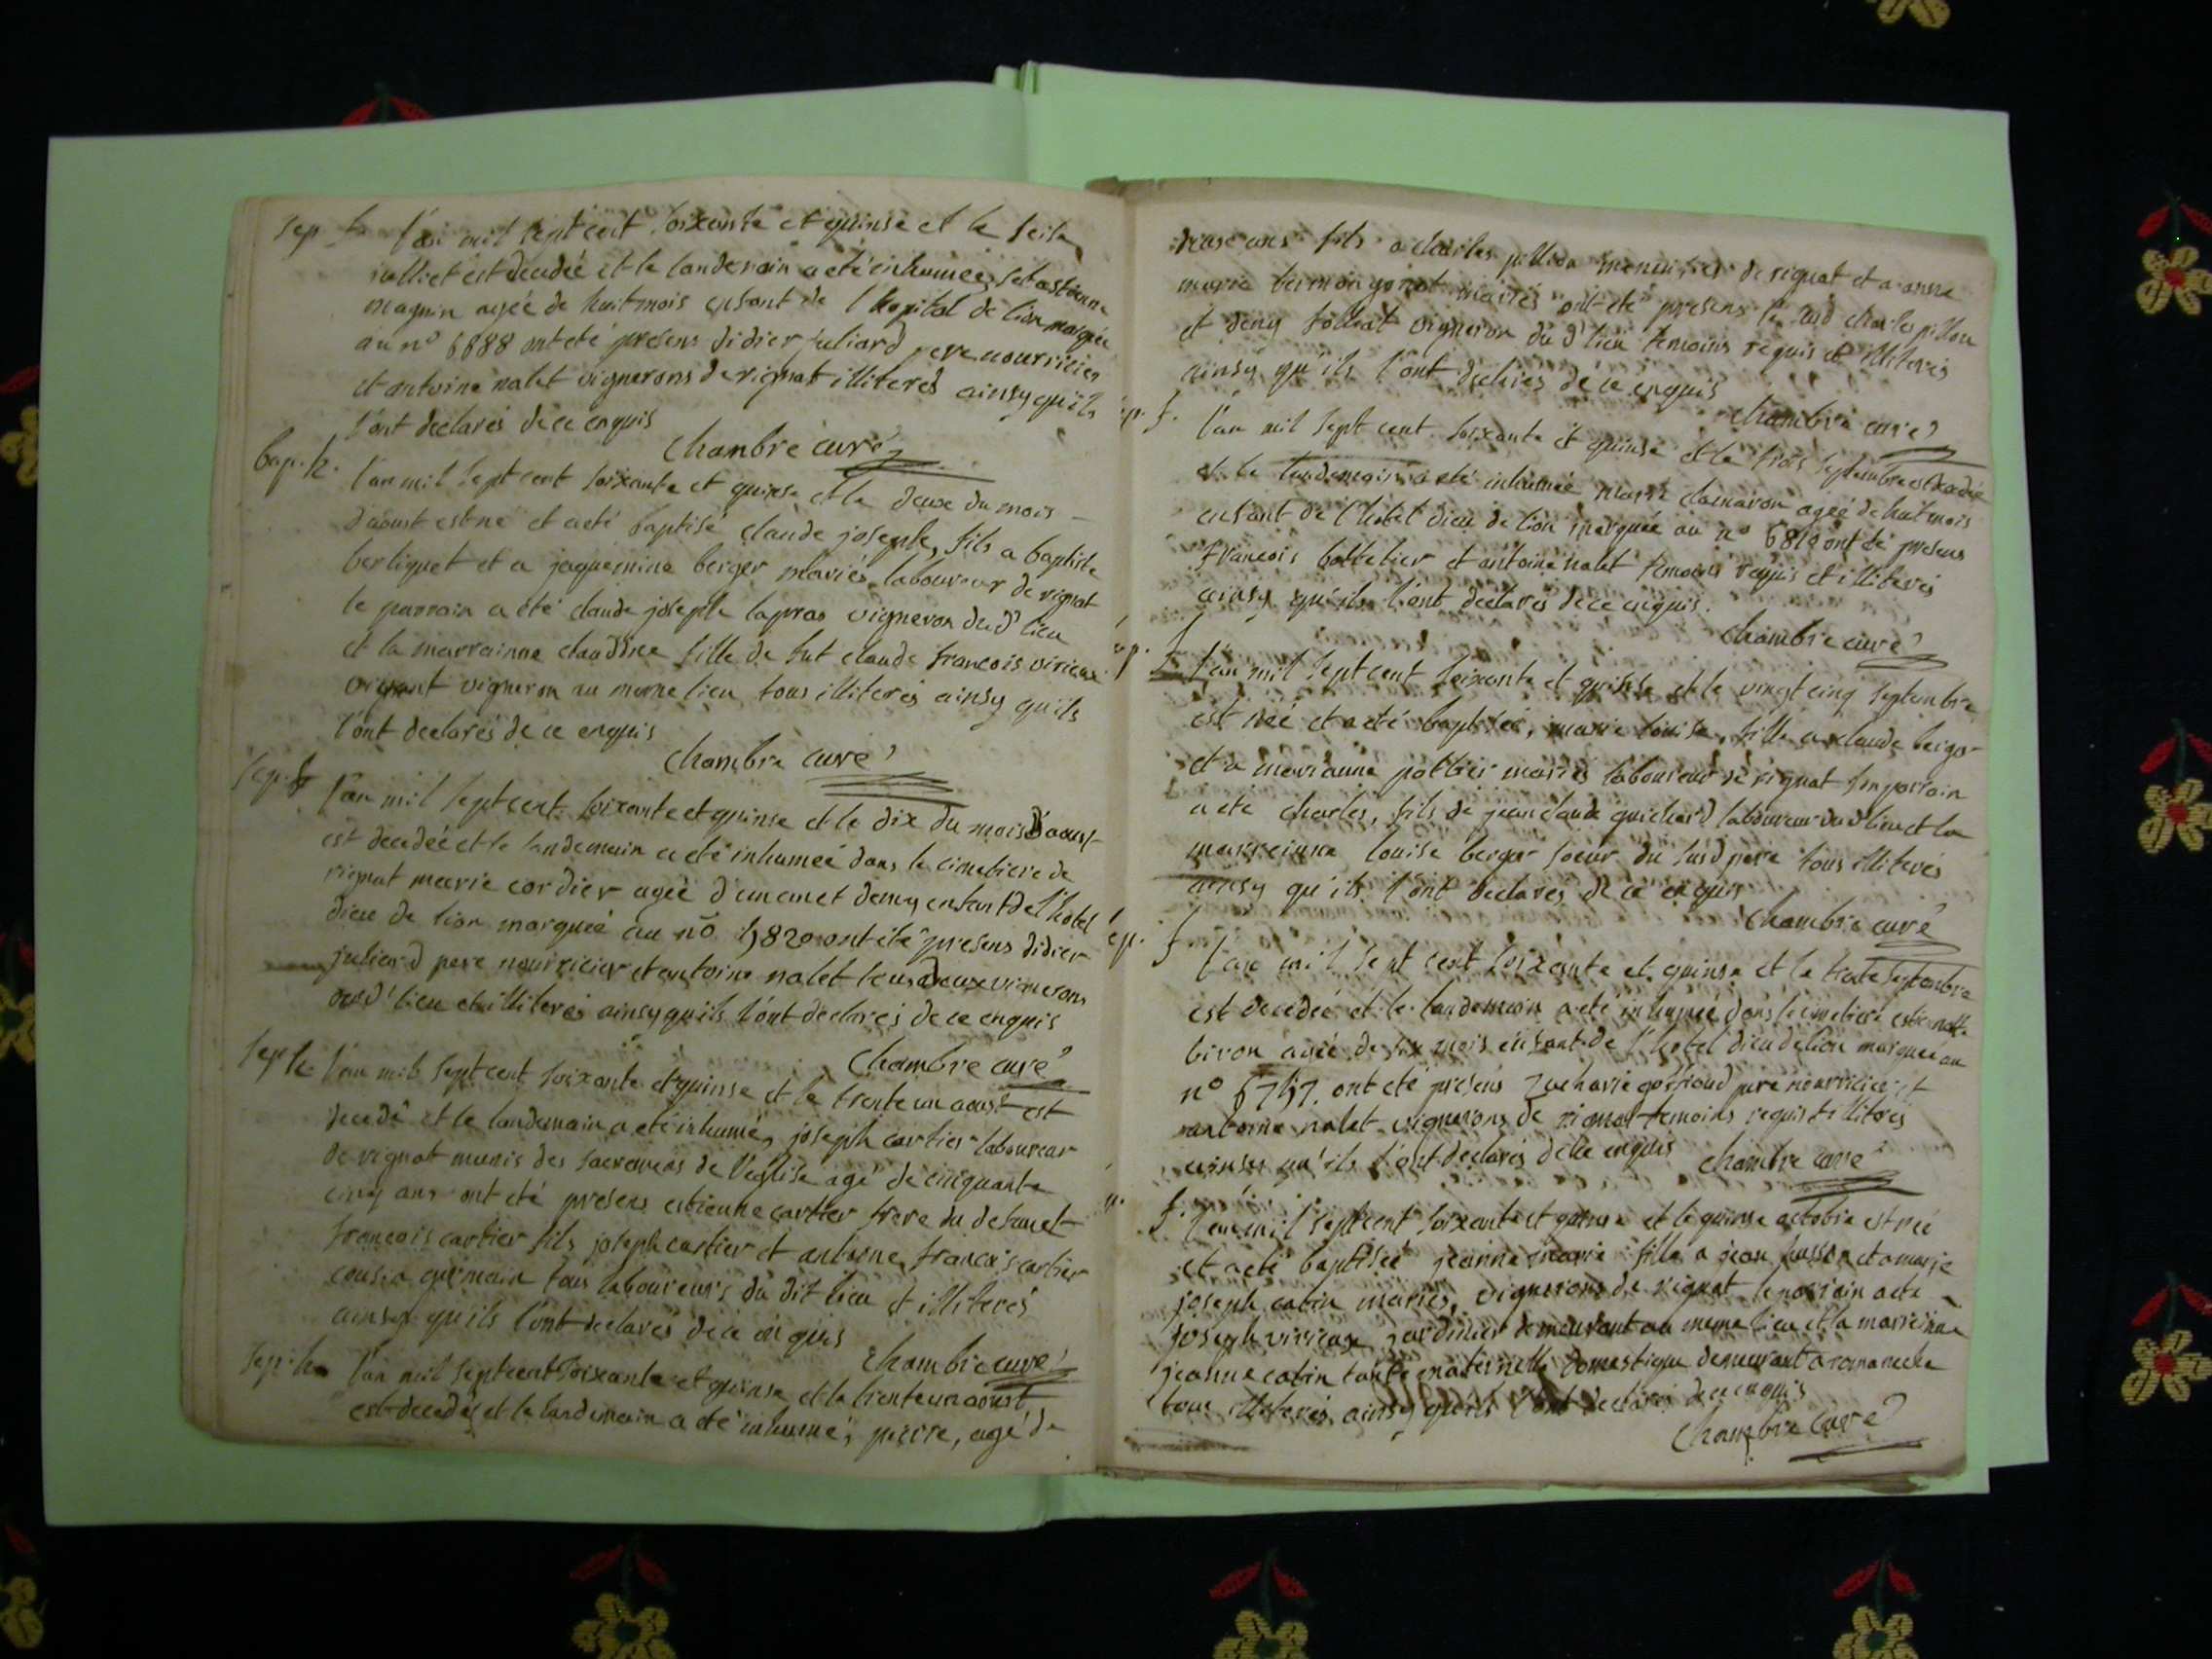 sep f. l'an mil sept cent soixante et quinse et le seise
julliet est decedeé et le landemain a eté inhumeé, sebastienne
magnin ageé de huit mois enfant de l'hopital de lion marqueé
au n° 6888 ont eté presens didier juliard pere nourricier
et antoine nalet vignerons de rignat illiterés ainsy qu'ils
l'ont declarés de ce enquis
chambre curé
bap. h. l'an mil sept cent soixante et quinse et le deux du mois
d'aoust est né et a eté baptisé claude joseph, fils a baptiste
berliquet et a jaquemine berger mariés laboureur de rignat
le parrain a été claude joseph lapras vigneron dud' lieu
et la marrainne claudine fille de fut claude francois virieux
vivant vigneron au meme lieu tous illiterés ainsy qu'ils
l'ont declarés de ce enquis
chambre curé
sep. f l'an mil sept cent soixante et quinse et le dix du mois d'aoust
est decedeé et le landemain a eté inhumeé dans le cimetiere de
rignat marie cordier ageé d'un an et demy enfant de l'hotel
dieu de lion marqueé au no 5820 ont été presens didier
juliard pere nourricier et antoine nalet tous deux vignerons
dud' lieu et illiterés ainsy qu'ils l'ont declarés de ce enquis
chambre curé
sep h. l'an mil sept cent soixante et quinse et le trente un aoust est
decedé et le landemain a eté inhumé, joseph cartier laboureur
de rignat munis des sacremens de l'eglise agé de cinquante
cinq ans ont eté presens estienne cartier frere du defunct
francois cartier fils joseph cartier et antoine, francois cartier
cousin germain tous laboureurs du dit lieu et illiterés
ainsy qu'ils l'ont declarés de ce enquis
chambre curé
sep. h. l'an mil sept cent soixante et quinse et le trente un aoust
est decedé et le landemain a eté inhumé, pierre, agé de
ans fils a charles pillion menuisier de rignat et a anne
marie mariés ont eté presens le susd charles pillion
et deny vigneron du d' lieu temoins requis et illiterés
ainsy qu'ils l'ont declarés de ce enquis
chambre curé
ep. f. l'an mil sept cent soixante et quinse et le trois septembre est decedeé
et le landemain a eté inhumeé marie ageé de huit mois
enfant de l'hotel dieu de lion marqueé au n° 6810 ont eté presens
francois bottelier et antoine nalet temoins requis et illiterés
ainsy qu'ils l'ont declarés de ce enquis.
chambre curé
ap. f l'an mil sept cent soixante et quinse et le vingt cinq septembre
est neé et a eté baptiseé, marie louise, fille a claude berger
et a marianne mariés laboureur de rignat son parrain
a eté charles, fils de jean claude guichard laboureur dud' lieu et la
marrainne louise berger soeur du susd pere tous illiterés
ainsy qu'ils l'ont declarés de ce enquis
chambre curé
ep. f. l'an mil sept cent soixante et quinse et le trente septembre
est decedeé et le landemain a eté inhumeé dans le cimetiere estiennette
biron ageé de six mois enfant de l'hotel dieu de lion marqueé au
n° ont eté presens zacharie pere nourricier et
antoine nalet vignerons de rignat temoins requis et illiterés
ainsy qu'ils l'ont declarés de ce enquis chambre curé
f. l'an mil sept cent soixante et quinse et le quinse octobre est neé
et a eté baptiseé jeanne marie fille a jean husson et a marie
joseph catin mariés, vignerons de rignat le parrain a eté
joseph virieux jardinier demeurant au meme lieu et la marrainne
jeanne catin tante maternelle domestique demeurant a romaneche
tous illiterés ainsy qu'ils l'ont declarés de ce enquis
chambre curé